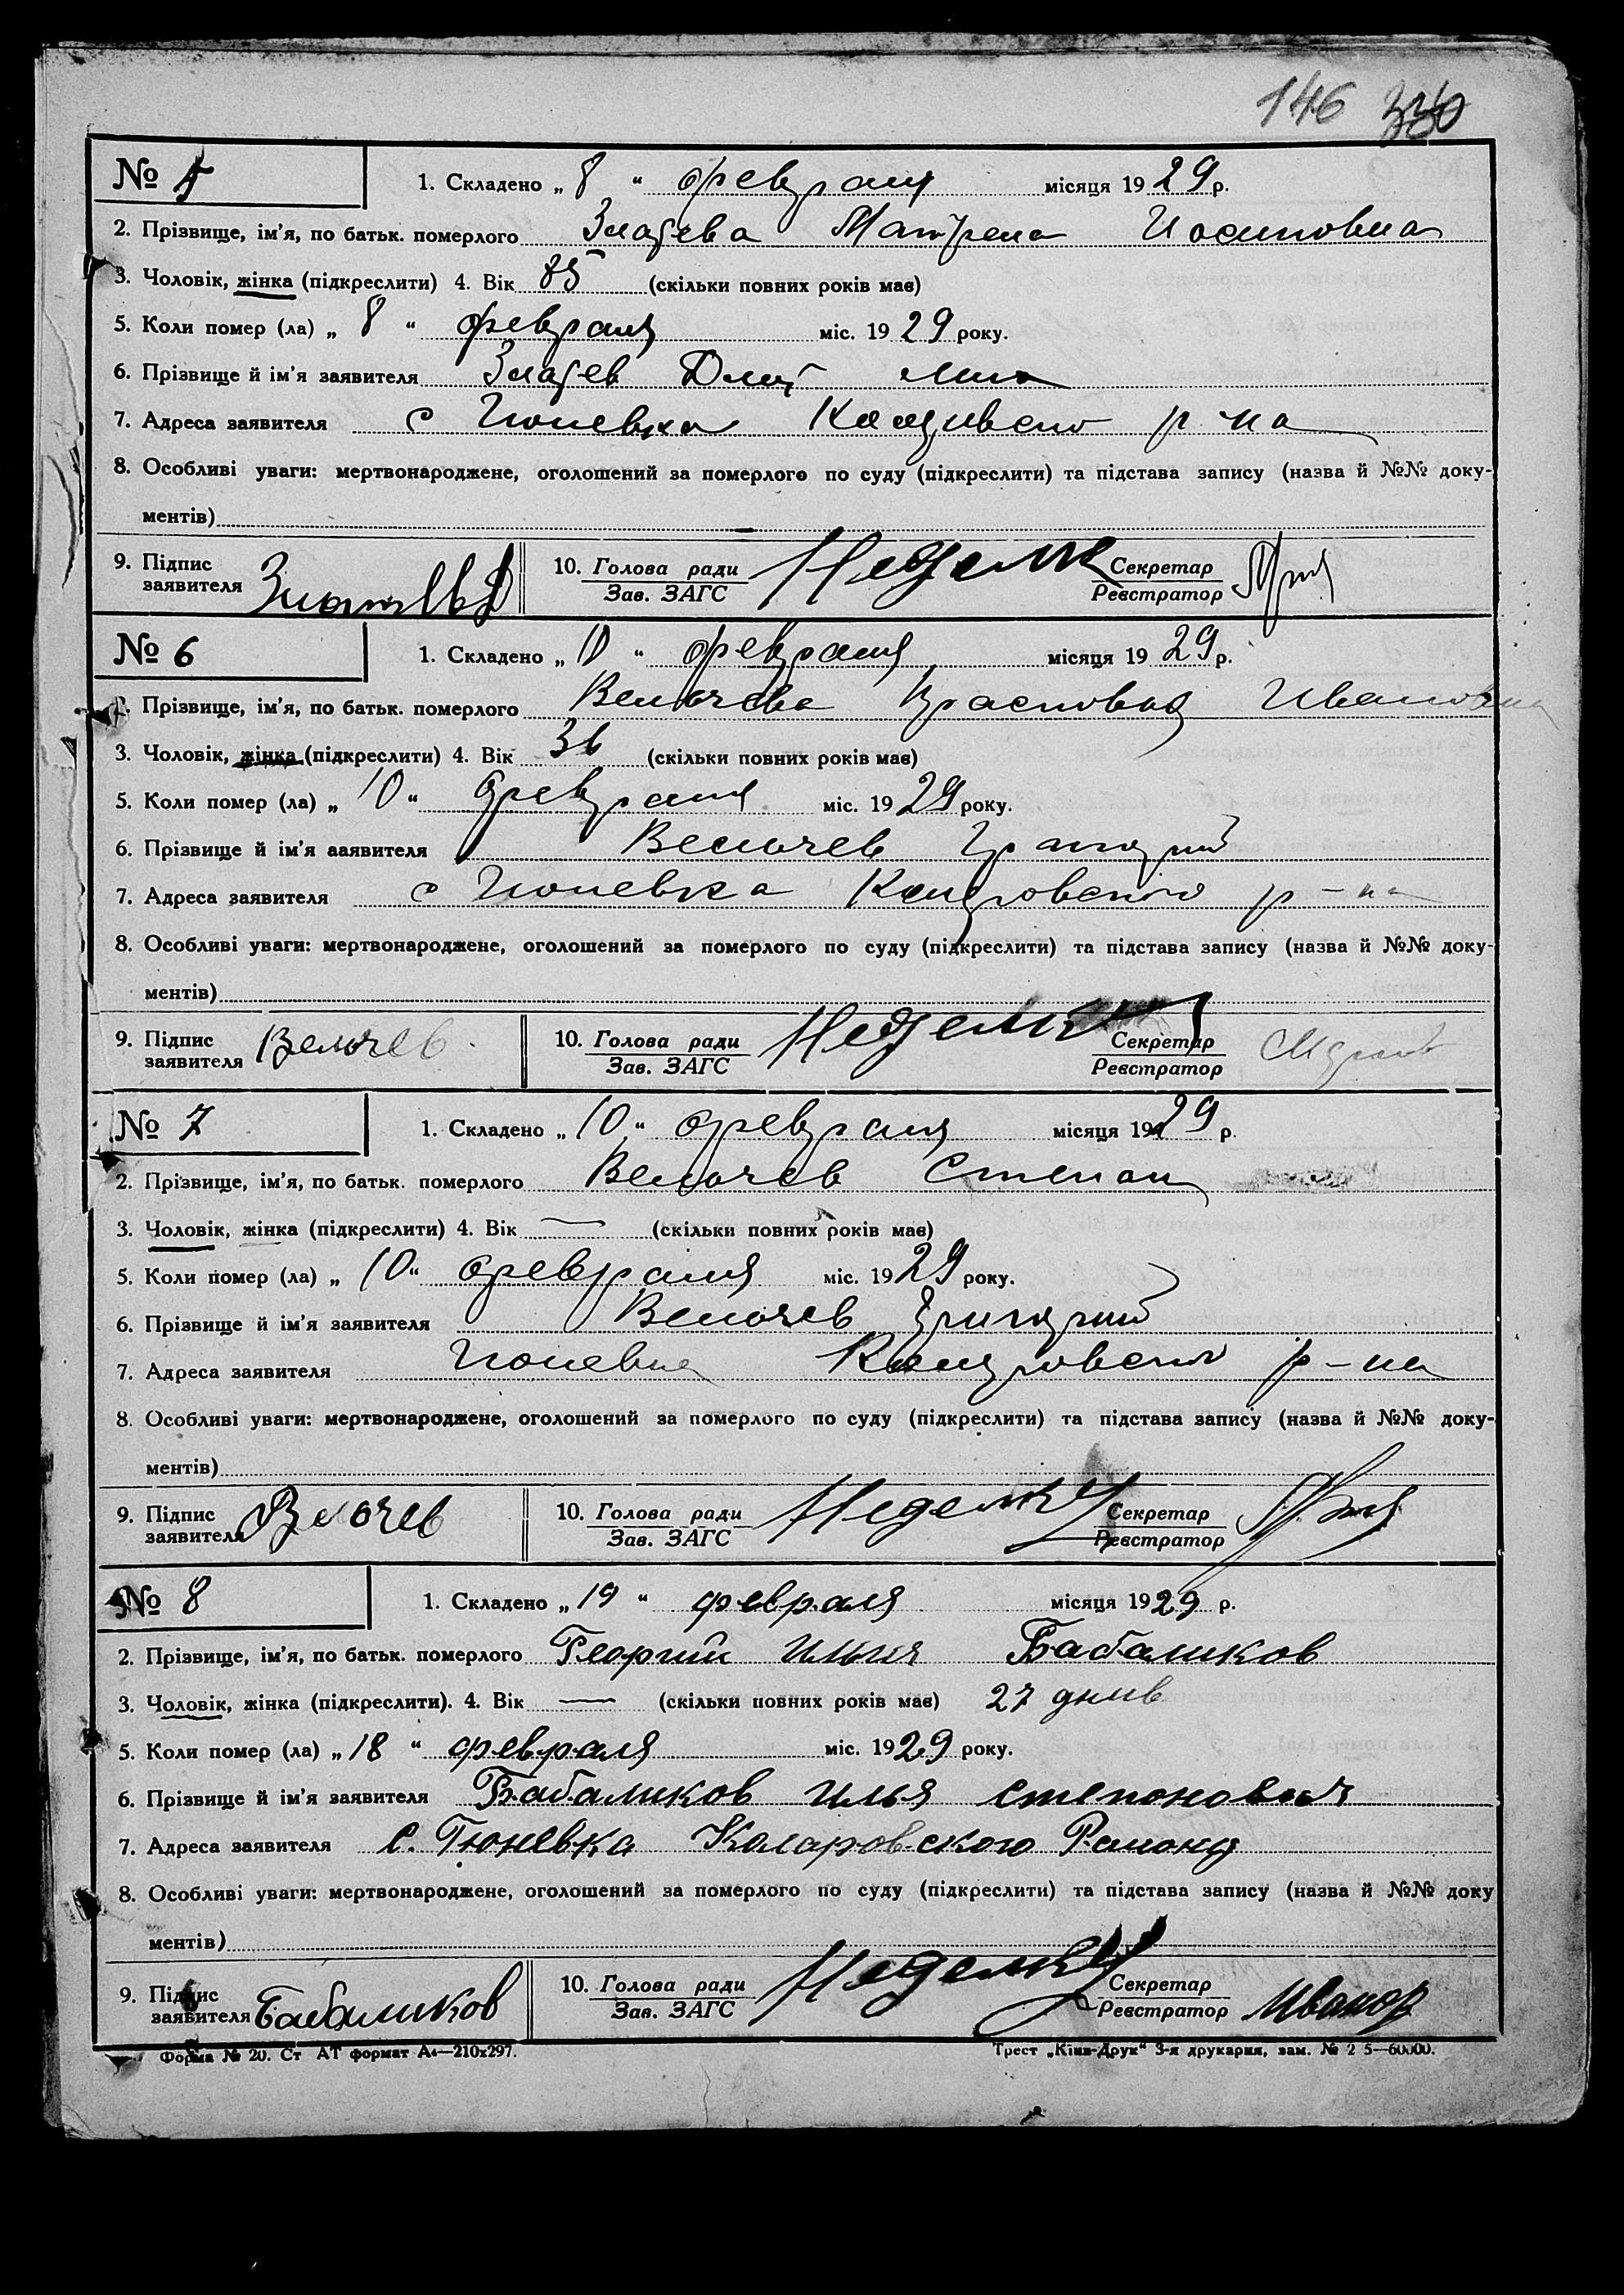 146 330
№ 5 1. Складено „ 8 “ февраля місяця 1929 р.
2. Прізвище, ім’я, по батьк. померлого Златева Матрена Иосиповна
3. Чоловік, жінка (підкреслити) 4. Вік 85 (скільки повних років має)
5. Коли помер (ла) „ 8 “ февраля міс. 1929 року.
6. Прізвище й ім’я заявителя Златев
7. Адреса заявителя с Гюневка р-на
8. Особливі уваги: мертвонароджене, оголошений за померлого по суду (підкреслити) та підстава запису (назва й №№ доку-
ментів)
9. Підпис
заявителя
10. Голова ради
Зав. ЗАГС
Секретар
Реєстратор
№ 6 1. Складено „ 10 “ февраля місяця 1929 р.
2. Прізвище, ім’я, по батьк. померлого Велючева Ивановна
3. Чоловік, жінка (підкреслити) 4. Вік 36 (скільки повних років має)
5. Коли помер (ла) „ 10 “ февраля міс. 1929 року.
6. Прізвище й ім’я заявителя Велючев
7. Адреса заявителя с Гюневка Коларовского р-на
8. Особливі уваги: мертвонароджене, оголошений за померлого по суду (підкреслити) та підстава запису (назва й №№ доку-
ментів)
9. Підпис
заявителя Велючев
10. Голова ради
Зав. ЗАГС
Секретар
Реєстратор
№ 7 1. Складено „ 10 “ февраля місяця 1929 р.
2. Прізвище, ім’я, по батьк. померлого Велючев Степан
3. Чоловік, жінка (підкреслити) 4. Вік — (скільки повних років має)
5. Коли помер (ла) „ 10 “ февраля міс. 1929 року.
6. Прізвище й ім’я заявителя Велючев Григорий
7. Адреса заявителя Гюневка Коларовского р-на
8. Особливі уваги: мертвонароджене, оголошений за померлого по суду (підкреслити) та підстава запису (назва й №№ доку-
ментів)
9. Підпис
заявителя Велючев
10. Голова ради
Зав. ЗАГС
Секретар
Реєстратор
№ 8 1. Складено „ 19 “ февраля місяця 1929 р.
2. Прізвище, ім’я, по батьк. померлого Георгий Илыч Бабаликов
3. Чоловік, жінка (підкреслити). 4. Вік — (скільки повних років має) 27 днив
5. Коли помер (ла) „ 18 “ февраля міс. 1929 року.
6. Прізвище й ім’я заявителя Бабаликов Илья степонович
7. Адреса заявителя С. Гюневка Коларовского Району
8. Особливі уваги: мертвонароджене, оголошений за померлого по суду (підкреслити) та підстава запису (назва й №№ доку
ментів)
9. Підпис
заявителя Бабаликов
10. Голова ради
Зав. ЗАГС
Секретар
Реєстратор Иванов
Форма № 20. Ст АТ формат А4—210х297. Трест „Київ-Друк“ 3-я друкарня, зам. № 2 5—60000.